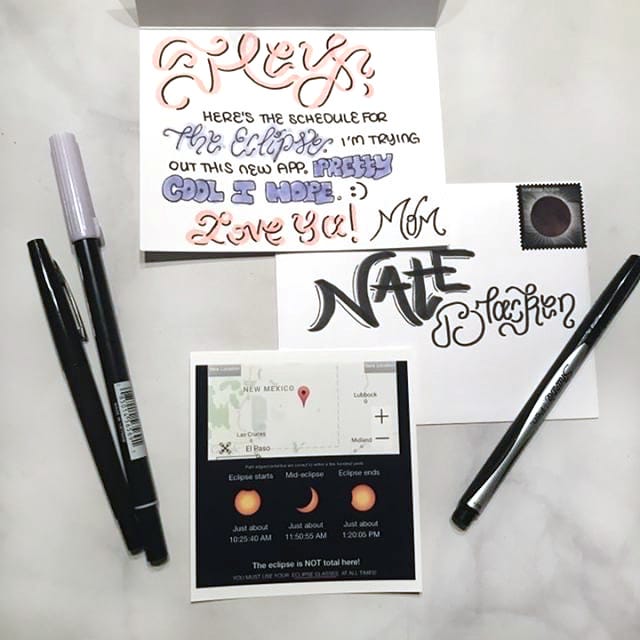 Hey,
HERE'S THE SCHEDULE FOR
The Eclipse. I'M TRYING
OUT THIS NEW APP. PRETTY
COOL I HOPE. :)
Love Ya! MOM
NATE
Blacken
New Location New Location
NEW MEXICO
Lubbock
+
Las Cruces
Midland
El Paso
−
Eclipse starts Mid-eclipse Eclipse ends
Just about Just about Just about
10:25:40 AM 11:50:55 AM 1:20:05 PM
The eclipse is NOT total here!
YOU MUST USE YOUR ECLIPSE GLASSES AT ALL TIMES!